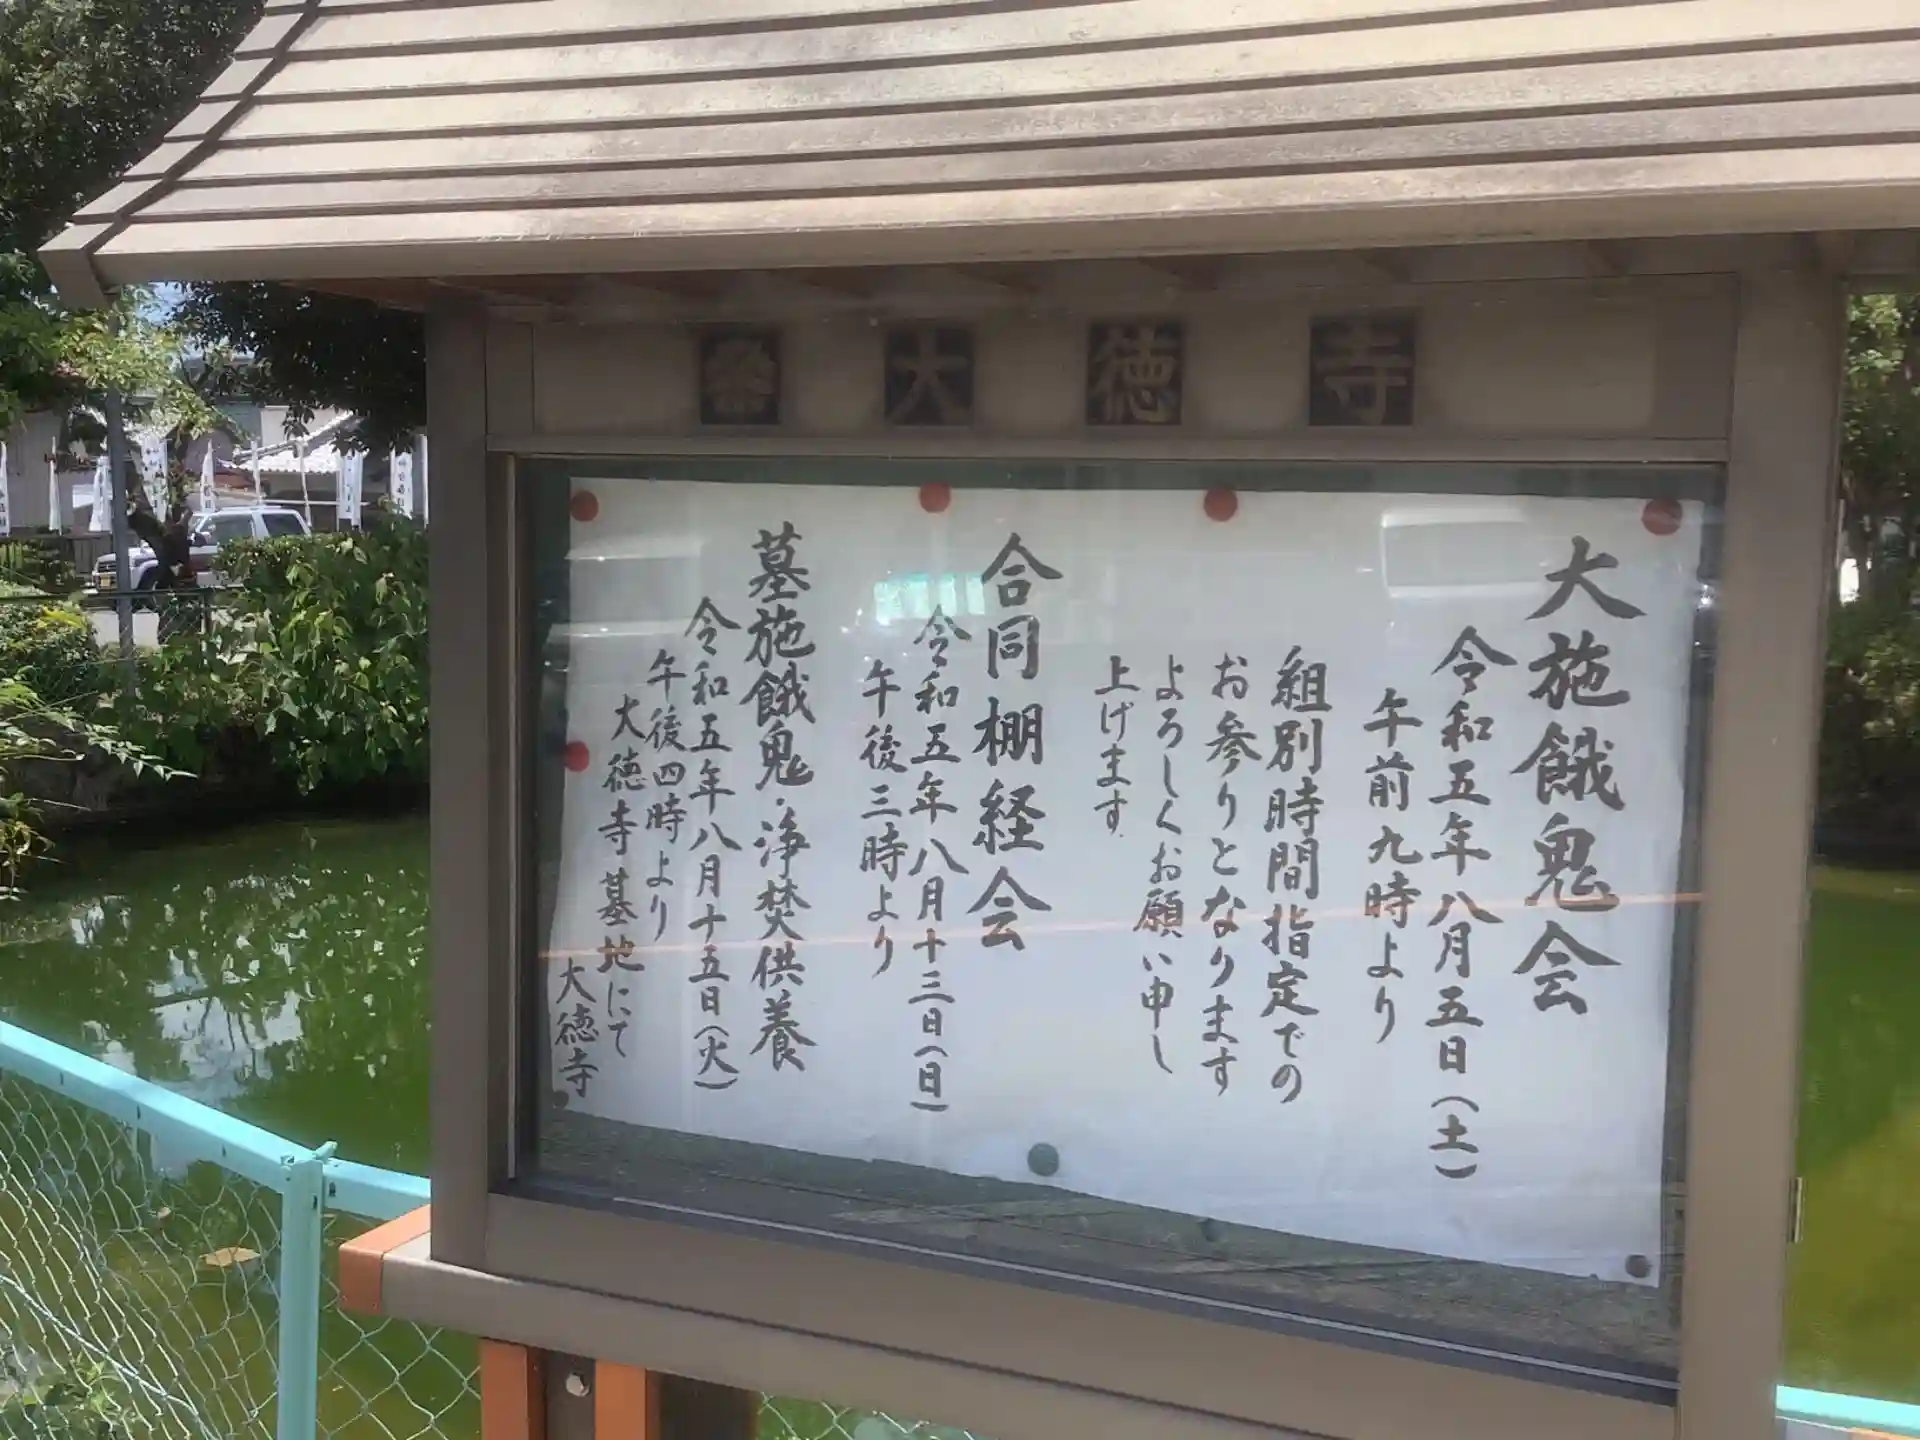 大徳寺
大施餓鬼会
令和五年八月五日(土)
午前九時より
組別時間指定での
お参りとなります
よろしくお願い申し
上げます
合同棚経会
令和五年八月十三日(日)
午後三時より
墓施餓鬼・浄焚供養
令和五年八月十五日(火)
午後四時より
大徳寺墓地にて
大徳寺